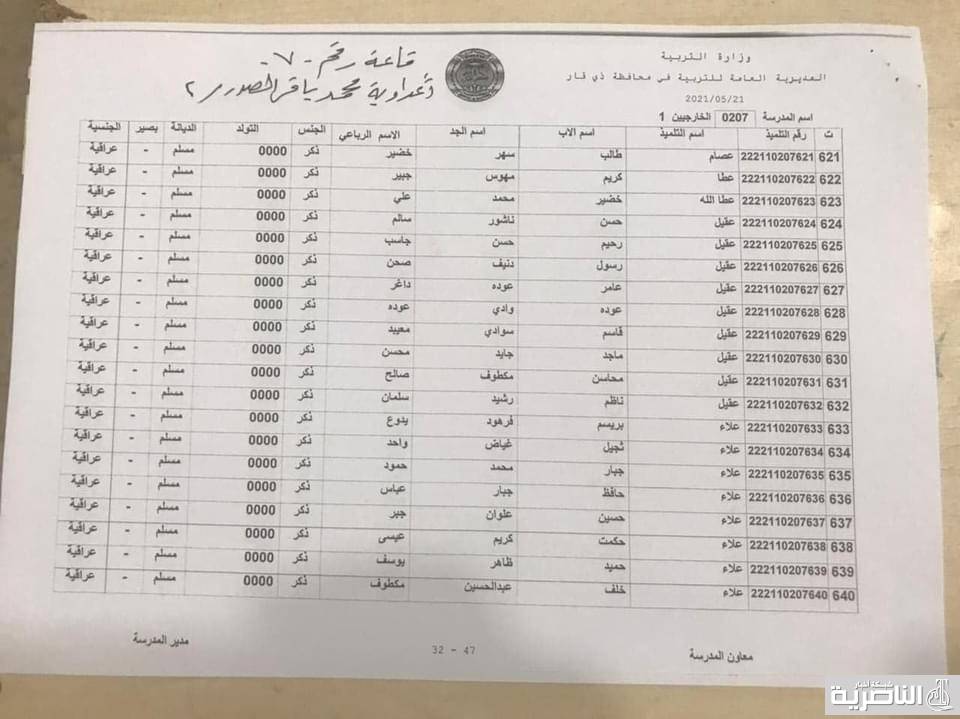 وزارة التربية
المديرية العامة للتربية في محافظة ذي قار
2021/05/21
قاعة رقم -٧-
أعدادية محمد باقر الصدر ٢
اسم المدرسة 0207 الخارجيين 1
ت رقم التلميذ اسم التلميذ اسم الاب اسم الجد الاسم الرباعي الجنس التولد الديانة بصير الجنسية
621 222110207621 عصام طالب سهر خضير ذكر 0000 مسلم - عراقية
622 222110207622 عطا كريم مهوس جبير ذكر 0000 مسلم - عراقية
623 222110207623 عطا الله خضير محمد علي ذكر 0000 مسلم - عراقية
624 222110207624 عقيل حسن ناشور سالم ذكر 0000 مسلم - عراقية
625 222110207625 عقيل رحيم حسن جاسب ذكر 0000 مسلم - عراقية
626 222110207626 عقيل رسول دنيف صحن ذكر 0000 مسلم - عراقية
627 222110207627 عقيل عامر عوده داغر ذكر 0000 مسلم - عراقية
628 222110207628 عقيل عوده وادي عوده ذكر 0000 مسلم - عراقية
629 222110207629 عقيل قاسم سوادي معيبد ذكر 0000 مسلم - عراقية
630 222110207630 عقيل ماجد جايد محسن ذكر 0000 مسلم - عراقية
631 222110207631 عقيل محاسن مكطوف صالح ذكر 0000 مسلم - عراقية
632 222110207632 عقيل ناظم رشيد سلمان ذكر 0000 مسلم - عراقية
633 222110207633 علاء بريسم فرهود يدوع ذكر 0000 مسلم - عراقية
634 222110207634 علاء ثجيل غياض واحد ذكر 0000 مسلم - عراقية
635 222110207635 علاء جبار محمد حمود ذكر 0000 مسلم - عراقية
636 222110207636 علاء حافظ جبار عباس ذكر 0000 مسلم - عراقية
637 222110207637 علاء حسين علوان جبر ذكر 0000 مسلم - عراقية
638 222110207638 علاء حكمت كريم عيسى ذكر 0000 مسلم - عراقية
639 222110207639 علاء حميد ظاهر يوسف ذكر 0000 مسلم - عراقية
640 222110207640 علاء خلف عبدالحسين مكطوف ذكر 0000 مسلم - عراقية
معاون المدرسة
32 - 47
مدير المدرسة
شبكة أخبار
الناصرية